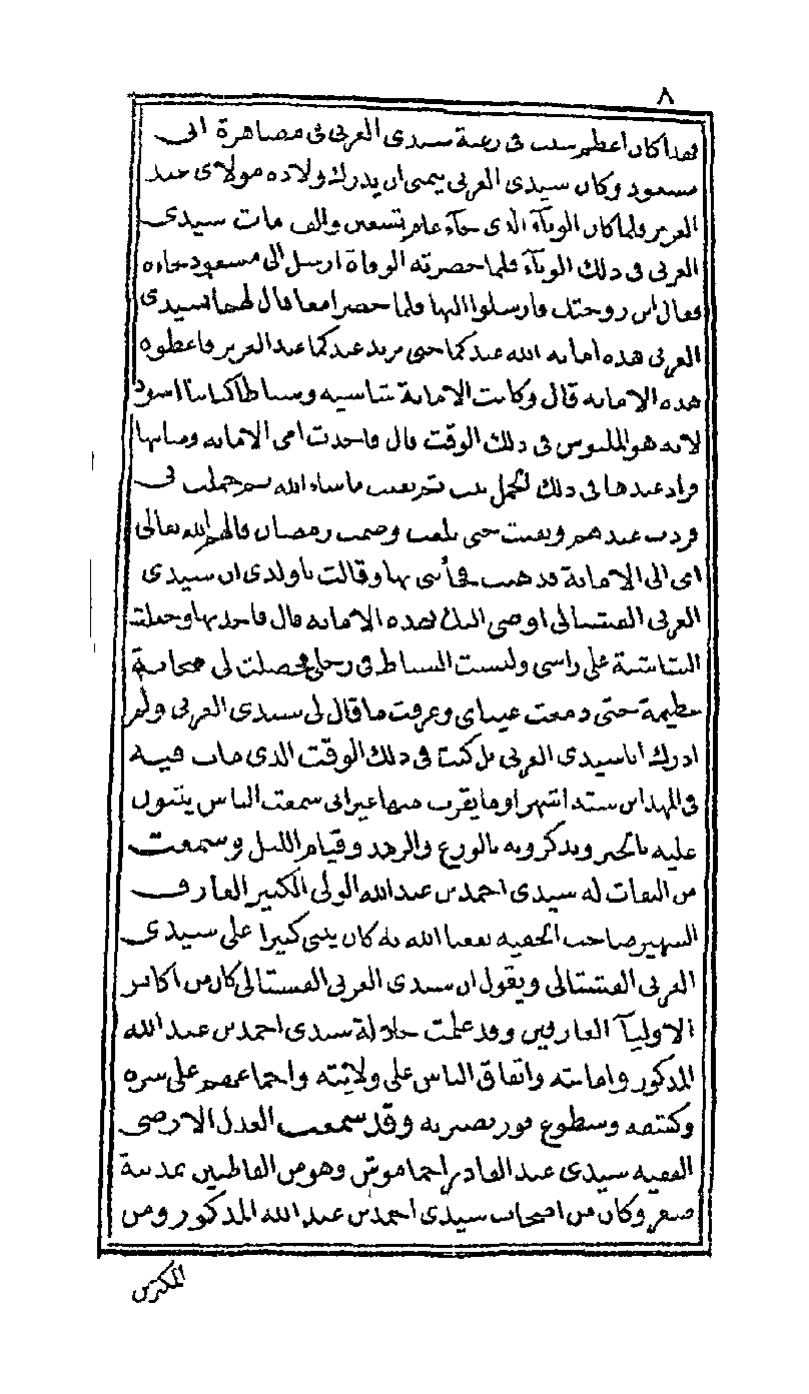 ٨
فهذا كان أعظم سبب في رغبة سيدي العربي في مصاهرة ابي
مسعود وكان سيدي العربي يتمنى ان يدرك ولادة مولاي عبد
العزيز فلما كان الوباء الذي جاء عام تسعين والف مات سيدي
العربي في ذلك الوباء فلما حضرته الوفاة ارسل الى مسعود فجاءه
فقال اين زوجتك فارسلوا اليها فلما حضرا معا قال لهما سيدي
العربي هذه امانة الله عندكما حتى يزيد عندكما عبد العزيز فاعطوه
هذه الامانة قال وكانت الامانة شاشية وسباطا اسود
لانه هو الملبوس في ذلك الوقت قال فاخذت امي الامانة وصانتها
فزاد عندها في ذلك الحمل بنت ثم بقيت ما شاء الله ثم حملت بي
فزدت عندهم وبقيت حتى بلغت وصمت رمضان فالهم الله تعالى
امي الى الامانة فذهبت فأتتني بها وقالت يا ولدي ان سيدي
العربي الفشتالي اوصى اليك بهذه الامانة قال فاخذتها وجعلت
الشاشية على راسي ولبست السباط في رجلي فحصلت لي سخانة
عظيمة حتى دمعت عيناي وعرفت ما قال لي سيدي العربي ولم
ادرك انا سيدي العربي بل كنت في ذلك الوقت الذي مات فيه
في المهد ابن ستة اشهر او ما يقرب منها غير اني سمعت الناس يثنون
عليه بالخير ويذكرونه بالورع والزهد وقيام الليل وسمعت
من الثقات له سيدي احمد بن عبد الله الولي الكبير العارف
الشهير صاحب الخفية نفعنا الله به كان يثني كثيرا على سيدي
العربي الفشتالي ويقول ان سيدي العربي الفشتالي كان من اكابر
الاولياء العارفين وقد علمت جلالة سيدي احمد بن عبد الله
المذكور وامامته واتفاق الناس على ولايته واجماعهم على سره
وكشفه وسطوع نور بصيرته وقد سمعت العدل الارضى
الفقيه سيدي عبد القادر اجاموش وهو من القاطنين بمدينة
صفرو وكان من اصحاب سيدي احمد بن عبد الله المذكور ومن
المكثرين